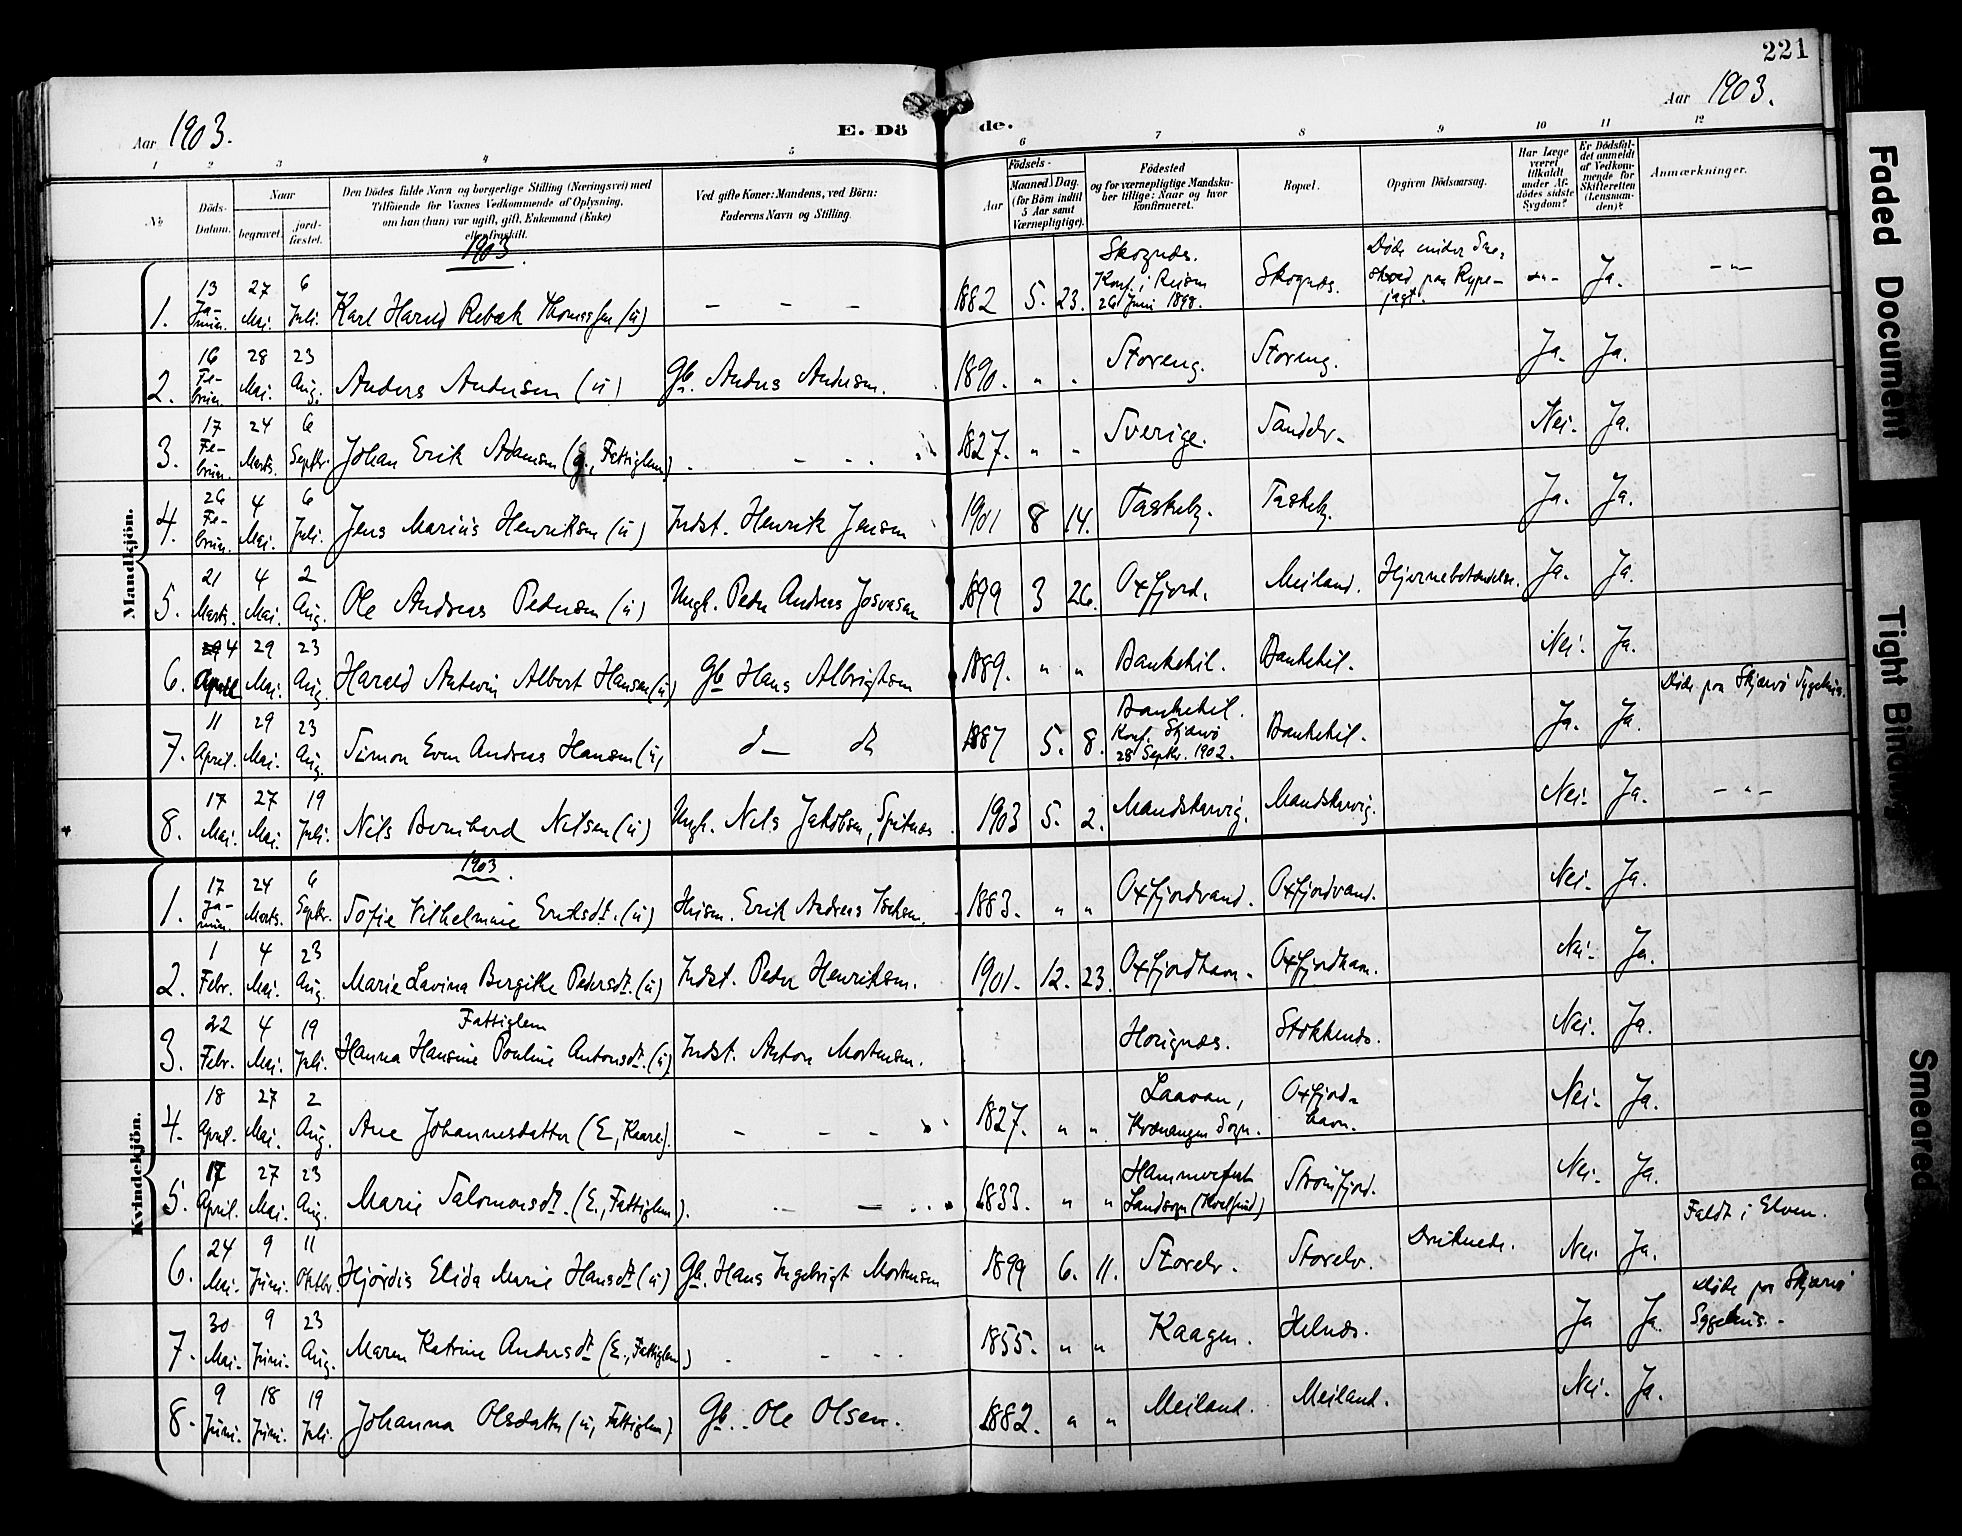 221
Aar 1903.
E. Dö de.
Aar 1903.
1 2 3 4 5 6 7 8 9 10 11 12
No
Döds-
Datum.
Naar
begravet.
jord-
fæstet.
Den Dödes fulde Navn og borgerlige Stilling (Næringsvei) med
Tilföiende for Voxnes Vedkommende af Oplysning,
om han (hun) var ugift, gift, Enkemand (Enke)
eller fraskilt.
Ved gifte Koner: Mandens, ved Börn:
Faderens Navn og Stilling.
Födsels-
Aar
Maaned Dag.
(for Börn indtil
5 Aar samt
Værnepligtige).
Födested
og for værnepligtige Mandska-
ber tillige: Naar og hvor
konfirmeret.
Bopæl.
Opgiven Dödsaarsag.
Har Læge
været
tilkaldt
under Af-
dödes sidste
Sygdom?
Er Dödsfal-
det anmeldt
af Vedkom-
mende for
Skifteretten
(Lensman-
den)?
Anmærkninger.
Mandkjön.
1903.
1. 13 Januar. 27 Mai. 6 Juli. Karl Harald Rebæk Thomassen (u) – – – 1882 5. 23. Skognæs. Konf. i 26 Juni 1898. Skognæs. Døde under Sneskred paa Rypejagt. -„- Ja. -„-
2. 16 Februar. 28 Mai. 23 Aug. Anders Andersen (u) Gb. Anders Andersen. 1890. „ „ Storeng. Storeng. Ja. Ja.
3. 17 Februar. 24 Marts. 6 Septbr. Johan Erik Adamsen (g., Fattiglem) – – – 1827. „ „ Sverige. Sandelv. Nei. Ja.
4. 26 Februar. 4 Mai. 6 Juli. Jens Marius Henriksen (u) Indst. Henrik Jensen 1901 8 14. Taskeby. Taskeby. Ja. Ja.
5. 21 Marts. 4 Mai. 2 Aug. Ole Andreas Pedersen (u) Ungk. Peder Andreas Josvasen 1899 3 26. Oxfjord. Meiland. Hjernebetændelse. Ja. Ja.
6. 4 April 29 Mai. 23 Aug. Harald Antwin Albert Hansen (u) Gb Hans Albrigtsen 1889. „ „ Bankekil. Bankekil. Nei. Ja.
7. 11 April. 29 Mai. 23 Aug. Simon Even Andreas Hansen (u) d– do 1887 5. 8. Bankekil. Konf. Skjærvø 28 Septbr. 1902. Bankekil. Ja. Ja. Døde paa Skjærvø Sygehus.
8. 17 Mai. 27 Mai. 19 Juli. Nils Bernhard Nilsen (u) Ungk. Nils Jakobsen, Spitnæs 1903 5. 2. Mandskarvig. Mandskarvig. Nei. Ja. -„-
Kvindekjön.
1903.
1. 17 Januar. 24 Marts. 6 Septbr. Sofie Vilhelmine Eriksdt. (u) Husm. Erik Andreas 1883. „ „ Oxfjordvand. Oxfjordvand. Nei. Ja.
2. 1 Febr. 4 Mai. 23 Aug. Marie Lavina Bergitte Pedersdt. (u) Indst. Peder Henriksen. 1901. 12. 23. Oxfjordhavn. Oxfjordhavn. Nei. Ja.
Fattiglem
3. 22 Febr. 4 Mai. 19 Juli. Hanna Hansine Pouline Antonsdt. (u) Indst. Anton Mortensen. Hongnæs. Stokkenæs. Nei. Ja.
4. 18 April. 27 Mai. 2 Aug. Ane Johannesdatter (E, Kaare). – – – 1827. „ „ Laavan, Kvænangen Sogn. Oxfjordhavn. Nei. Ja.
5. 17 April. 27 Mai. 23 Aug. Marie Salomonsdt. (E., Fattiglem). – – 1833. „ „ Hammerfest Landsogn (Kvalsund) Straumfjord. Nei. Ja.
6. 24 Mai. 9 Juni. 11 Oktbr. Hjørdis Elida Marie Hansdt (u) Gb. Hans Ingebrigt Mortensen 1899 6. 11. Storelv. Storelv. Druknede. Nei Ja. Faldt i Elven.
7. 30 Mai. 9 Juni. 23 Aug. Maren Katrine Andersdt (E., Fattiglem) – – 1855. „ „ Kaagen. Helnæs. Ja Ja. Døde paa Skjærvø Sygehus.
8. 9 Juni. 18 Juni. 19 Juli. Johanna Olsdatter (u, Fattiglem) Gb. Ole Olsen. 1882. „ „ Meiland. Meiland. Nei. Ja.
Faded Document
Tight Binding
Smeared